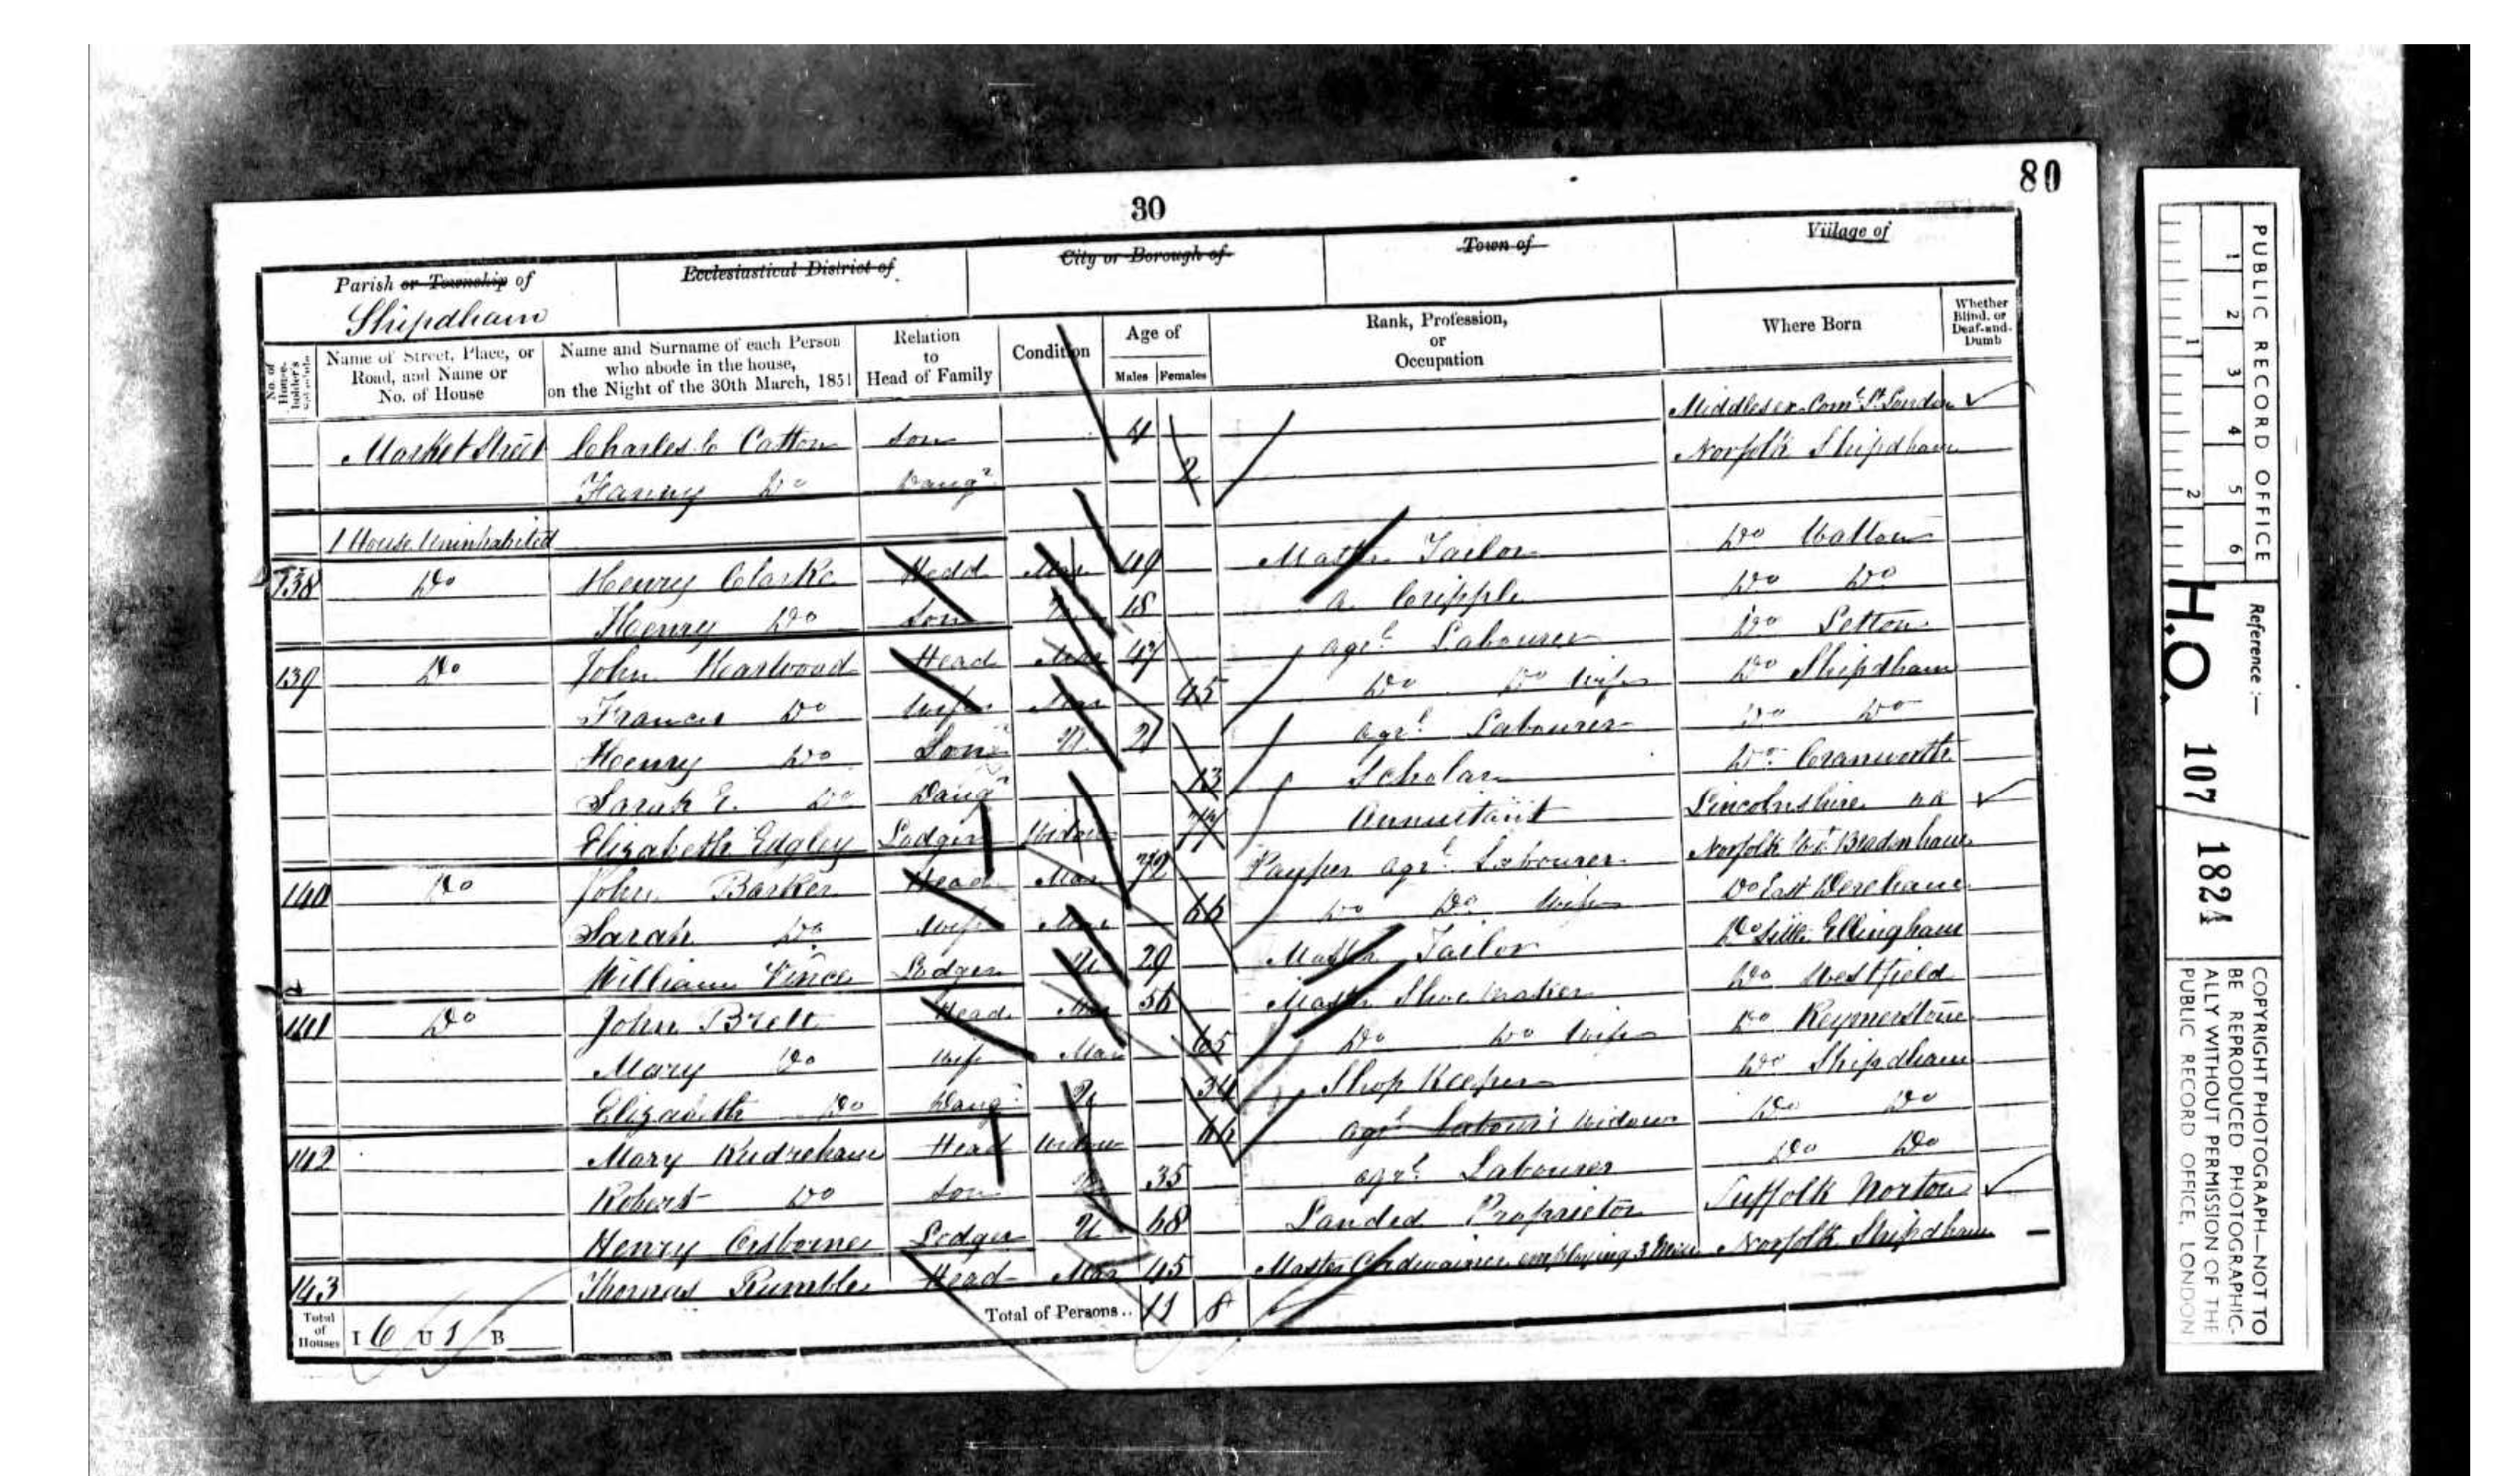 80
30
Parish or Township of
Shipdham
Ecclesiastical District of
City or Borough of
Town of
Village of
No. of House-holder's Schedule
Name of Street, Place, or Road, and Name or No. of House
Name and Surname of each Person who abode in the house, on the Night of the 30th March, 1851
Relation to Head of Family
Condition
Age of
Males Females
Rank, Profession, or Occupation
Where Born
Whether Blind, or Deaf-and-Dumb
Market Street Charles C Catton Son 4 Middlesex London
Fanny Do Daugr 2 Norfolk Shipdham
1 House Uninhabited
138 Do Henry Clarke Head Mar 49 Master Tailor Do
Henry Do Son U 18 a Cripple Do Do
139 Do John Harwood Head Mar 47 agrl Labourer Do Letton
Frances Do Wife Mar 45 Do Do Wife Do Shipdham
Henry Do Son U 21 agrl Labourer Do Do
Sarah E. Do Daugr 13 Scholar Do Cranworth
Elizabeth Edgley Lodger Widow 77 Annuitant Lincolnshire n k
140 Do John Barker Head Mar 72 Pauper agrl Labourer Norfolk Wt Bradenham
Sarah Do Wife Mar 66 Do Do Wife Do East Dereham
William Vince Lodger U 29 Master Tailor Do Little Ellingham
141 Do John Brett Head Mar 56 Master Shoe Maker Do Westfield
Mary Do Wife Mar 65 Do Do Wife Do Reymerstone
Elizabeth Do Daugr U 34 Shop Keeper Do Shipdham
142 Mary Head Widow 66 agrl Labour's Widow Do Do
Robert Do Son U 35 agrl Labourer Do Do
Henry Osborne Lodger U 68 Landed Proprietor Suffolk Norton
143 Thomas Rumble Head Mar 45 Master Cordwainer employing 3 Men Norfolk Shipdham
Total of Houses I 6 U 1 B
Total of Persons.. 11 8
PUBLIC RECORD OFFICE
1 2 3 4 5 6
1 2
Reference :—
H.O. 107 / 1824
COPYRIGHT PHOTOGRAPH—NOT TO
BE REPRODUCED PHOTOGRAPHIC-
ALLY WITHOUT PERMISSION OF THE
PUBLIC RECORD OFFICE, LONDON